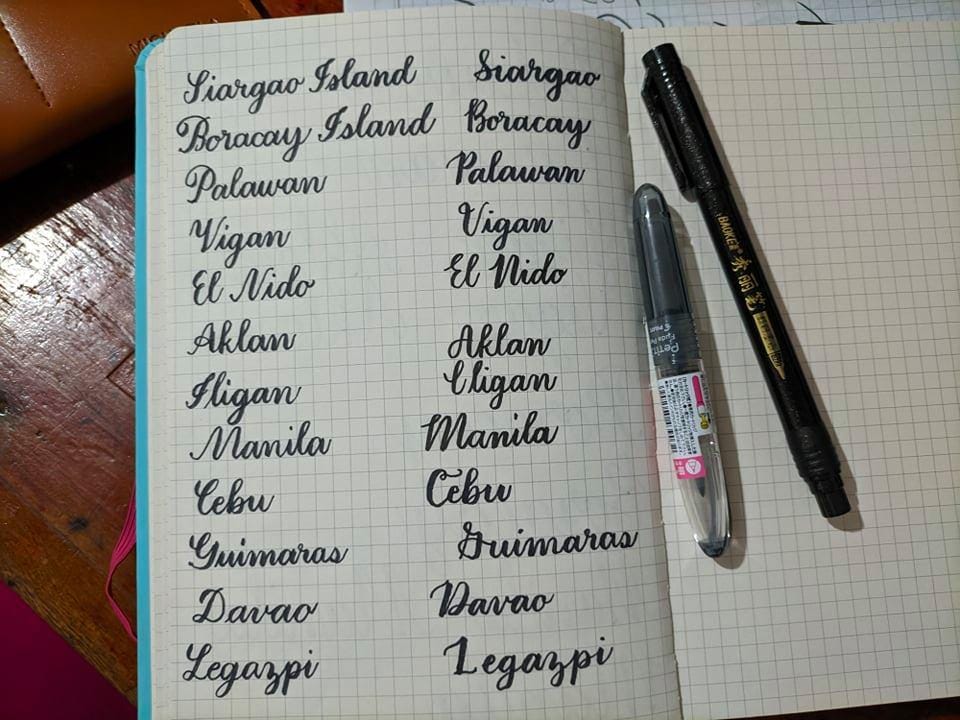 Siargao Island Siargao
Boracay Island Boracay
Palawan Palawan
Vigan Vigan
El Nido El Nido
Aklan Aklan
Iligan Iligan
Manila Manila
Cebu Cebu
Guimaras Guimaras
Davao Davao
Legazpi Legazpi
BAOKE® 秀丽笔
Petit
PILOT